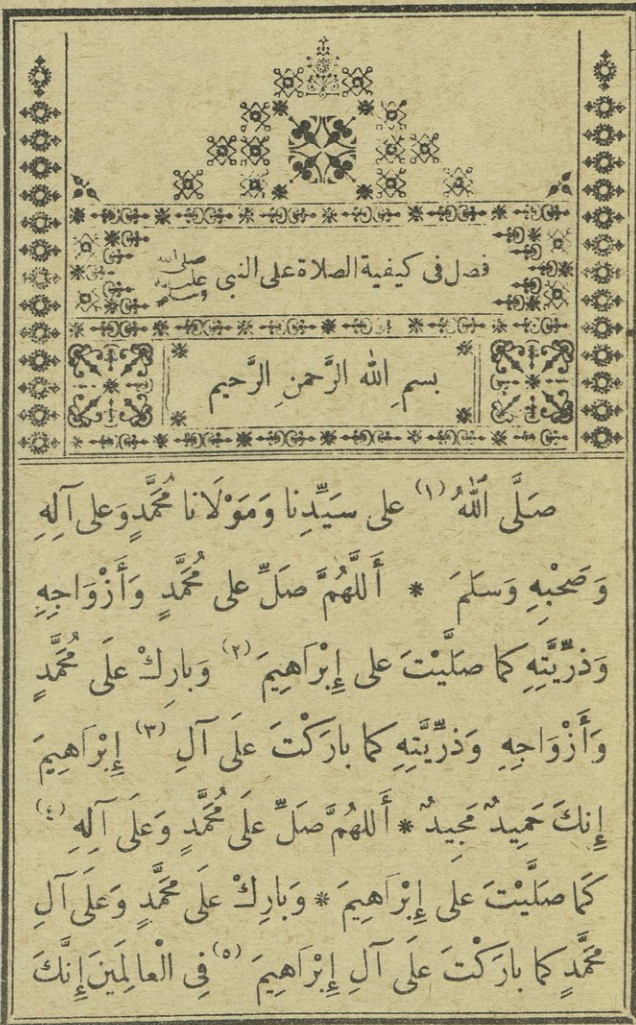 فصل فى كيفية الصلاة على النبى صلى الله عليه وسلم
بسمِ اللهِ الرَّحمنِ الرَّحيم
صَلَّى اللهُ (١) على سَيِّدِنا وَمَوْلَانا مُحَمَّدٍ وَعلى آلِهِ
وَصَحْبِهِ وَسَلمَ * أَللَّهُمَّ صَلِّ على مُحَمَّدٍ وَأَزْوَاجِهِ
وَذرِّيَّتِهِ كما صَلَّيْتَ على إِبْرَاهِيمَ (٢) وَبارِكْ علَى مُحَمَّدٍ
وَأَزْوَاجِهِ وَذرِّيَّتِهِ كما بارَكْتَ علَى آلِ (٣) إِبْرَاهِيمَ
إِنكَ حَمِيدٌ مَجِيدٌ * أَللهُمَّ صَلِّ علَى مُحَمَّدٍ وَعَلَى آلِهِ (٤)
كَما صَلَّيْتَ علَى إِبْرَاهِيمَ * وَبارِكْ علَى مُحَمَّدٍ وَعلَى آلِ
مُحَمَّدٍ كما بارَكْتَ علَى آلِ إِبْرَاهِيمَ (٥) فِى الْعالمِينَ إِنَّكَ